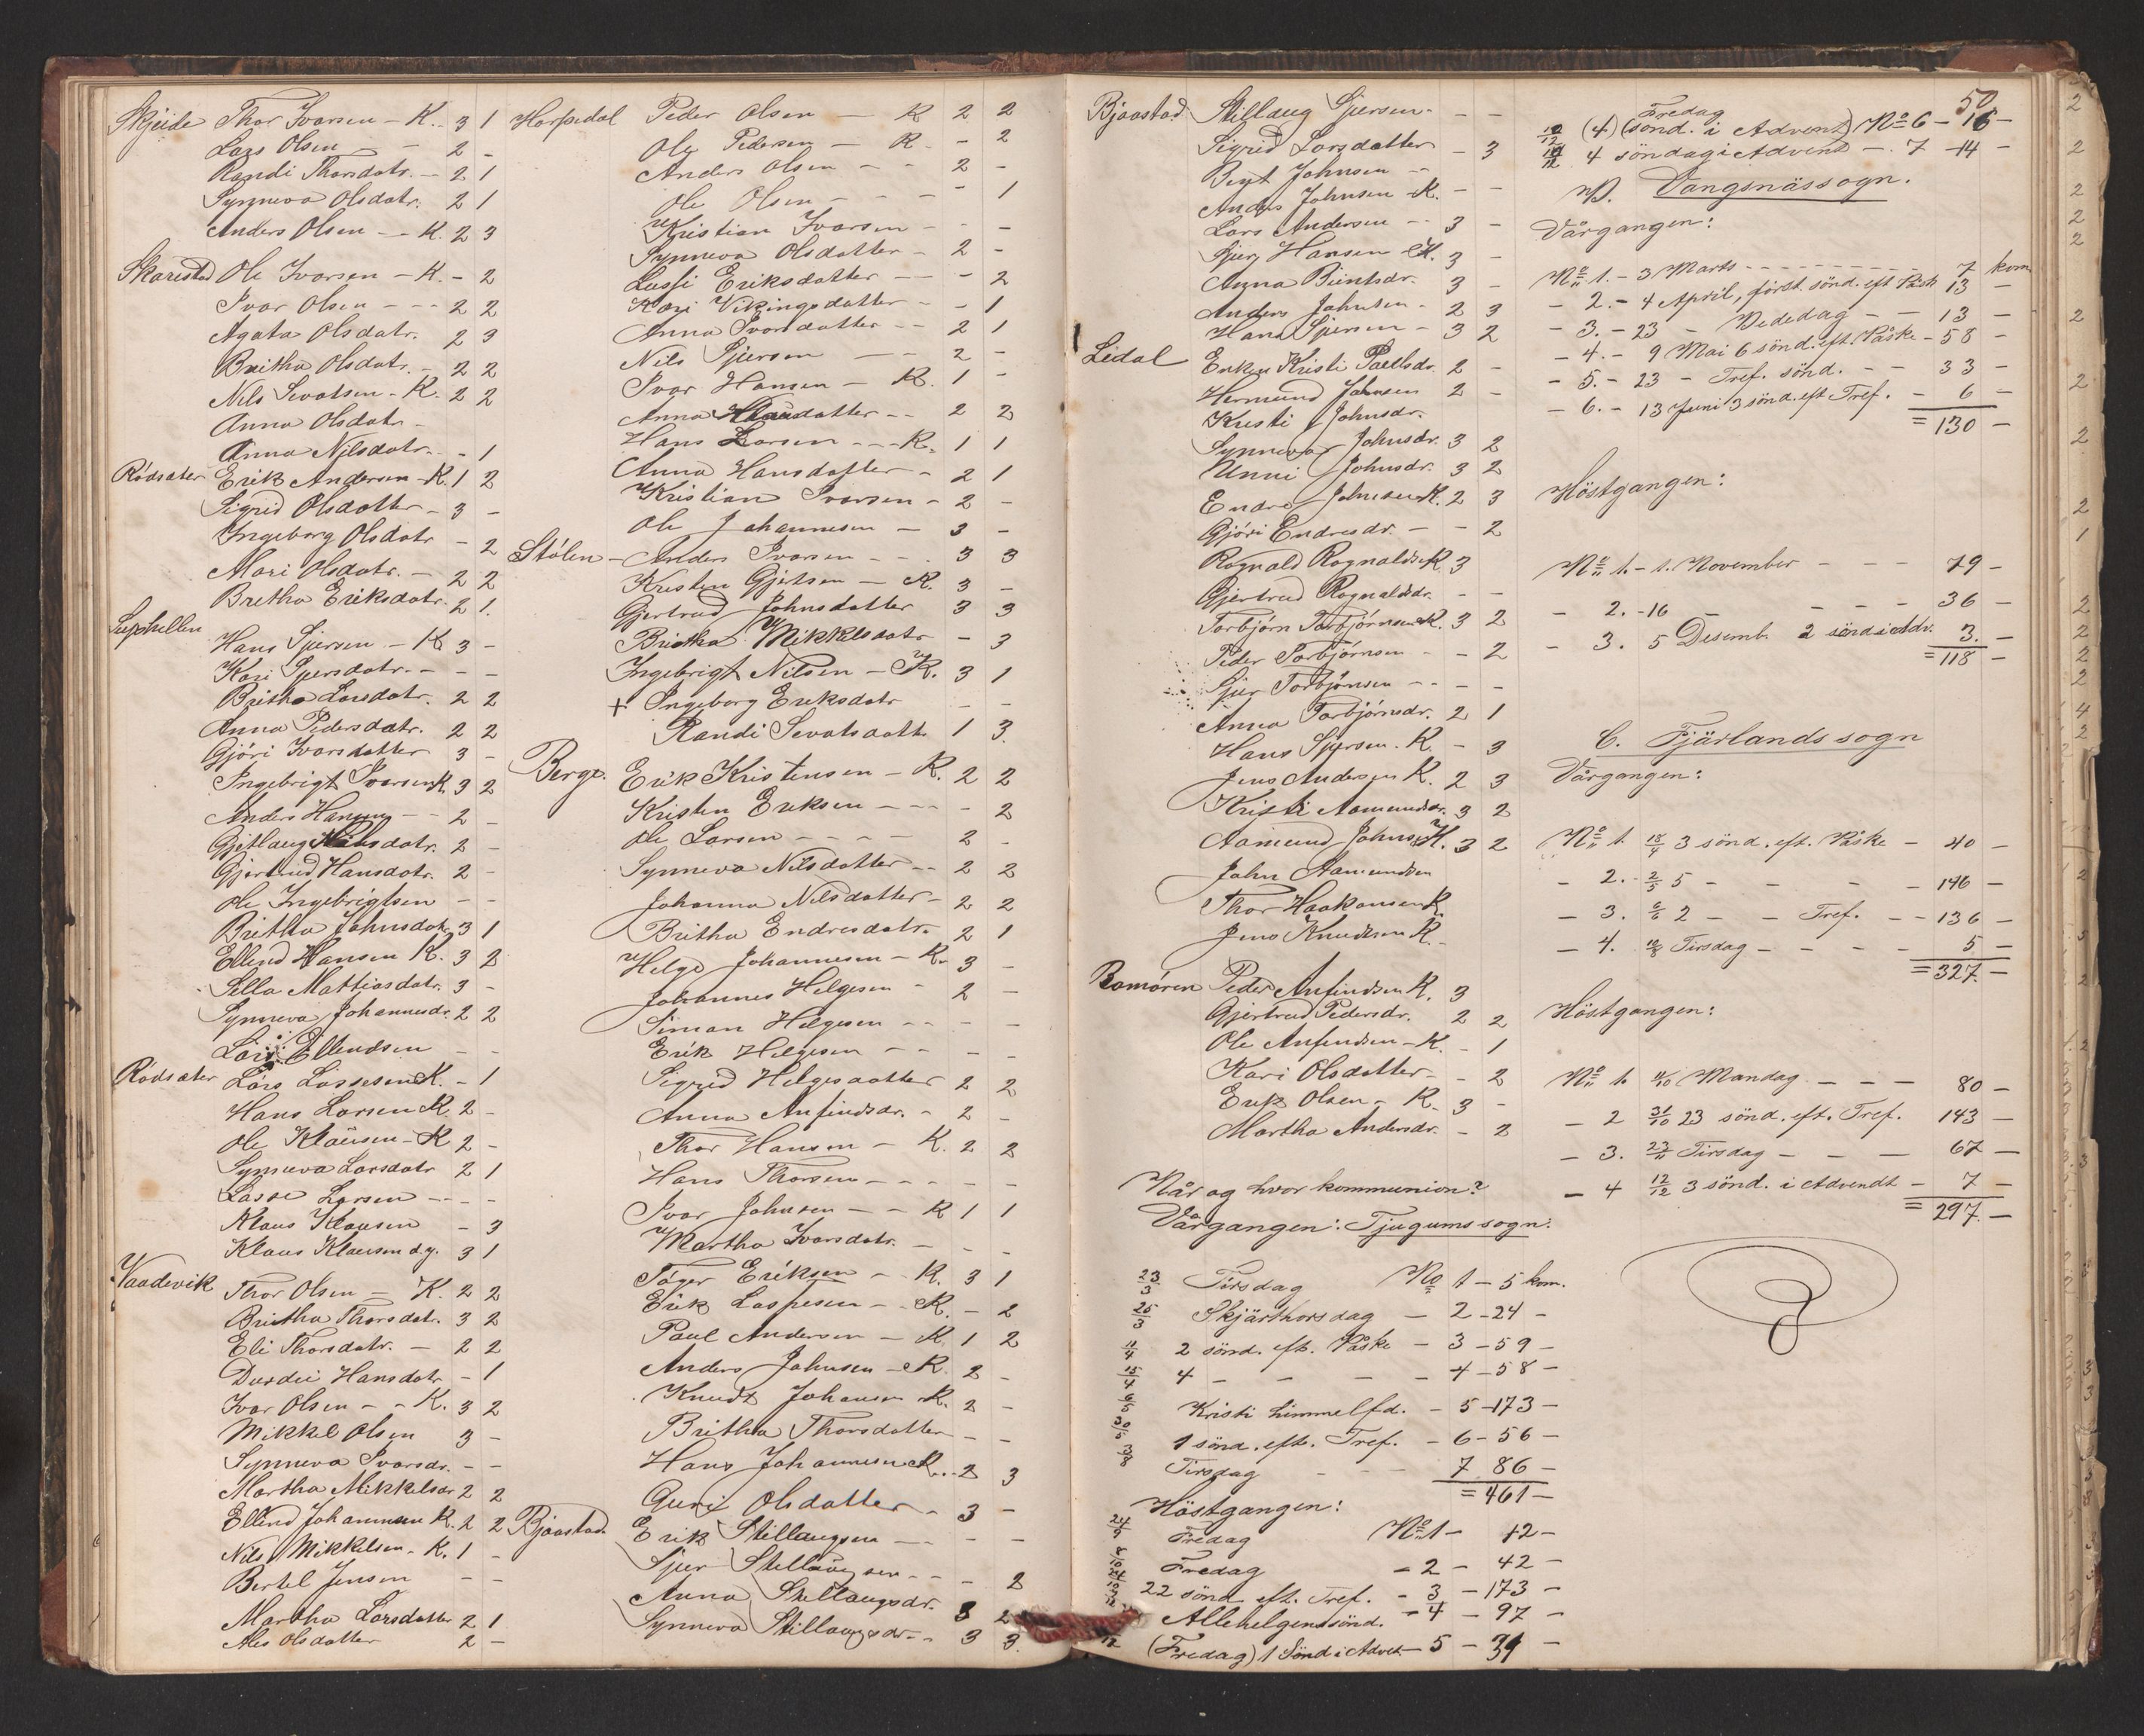 Skjeide Thor Ivarsen - K. 3 1
Lars Olsen - 2 -
Randi Thorsdatr. - 2 1
Synneva Olsdatr. 2 1
Anders Olsen - K. 2 3
Skarestad Ole Ivarsen - K. - 2
Ivar Olsen - - - 2 2
Agata Olsdatr. 2 3
Britha Olsdatr. - 2 2
Nils Sevatsen - K. 2 2
Anna Olsdatr -
Anna Nilsdatr. - 1
Rödsæter Erik Andersen - K. 1 2
Sigrid Olsdatter - 3 -
Ingeborg Olsdatr - 2
Mari Olsdatr. - 2 2
Bretha Eriksdatr. 2 1.
Suphellen
Hans Sjursen - K 3 -
Kari Sjursdatr. - - -
Britha Larsdatr. 2 2
Anna Pedersdatr. 2 2
Gjöri Ivarsdatter 3 -
Ingebrigt Ivarsen K. 3 2
Anders Hansen - - 2 -
Gjetlaug Nilsdatr. 2 -
Gjertrud Hansdatr. 2 -
Ole Ingebrigtsen - -
Britha Johnsdatr 3 1
Ellend Hansen K. 3 2
Sella Mattiasdatr. 3 -
Synneva Johannesdr. 2 2
Lars Ellendsen - -
Rödsæter Lars Lassesen K. - 1
Hans Larsen K. 2 -
Ole Klausen - K 2 -
Synneva Larsdatr 2 1
Lasse Larsen - - - -
Klaus Klausen - 3
Klaus Klausen d.y. 3 1
Vaadevik Thor Olsen - K. 2 2
Britha Thorsdatr. 3 2
Eli Thorsdatr. - 2 2
Durdei Hansdatr - 1
Ivar Olsen - - K. 3 2
Mikkel Olsen 3 -
Synneva Ivarsdr. - -
Martha Mikkelsdr 2 2
Ellend Johannesen K. 2 2
Nils Mikkelsen - K. 1 -
Bertel Jensen - -
Martha Larsdatter 2 1
Ales Olsdatter 2 -
Harpedal Peder Olsen - K 2 2
Ole Pedersen - K - 2
Anders Olsen - - 2 -
Ole Olsen - - - 1
Kristian Ivarsen - - -
Synneva Olsdatter - 2 -
Lussi Eriksdatter - - - 2
Kari Vikingsdatter - - 1
Anna Ivarsdatter - - 2 1
Nils Sjursen - - 2 -
Ivar Hansen - K. 1 -
Anna Hansdatter - - 2 2
Hans Larsen - - - K. 1 1
Anna Hansdatter - 2 1
Kristian Ivarsen - 2 -
Ole Johannesen - 3 -
Stölen - Anders Ivarsen - - 3 3
Kristen Gjertsen - K. 3 -
Gjertrud Johnsdatter 3 3
Britha Mikkelsdatr - 3
Ingebrigt Nilsen - K. 3 1
+ Ingeborg Eriksdatr - -
Randi Sevatsdatt 1 3.
Berge. Erik Kristensen - K. 2 2
Kristen Eriksen - - - - 2
Ole Larsen - - - - 2 -
Synneva Nilsdatter - - 2 2
Johanna Nilsdatter - 2 2
Britha Endresdatr. 2 1
Helge Johannesen - K. 3 -
Johannes Helgesen - 2 -
Simon Helgesen - - - -
Erik Helgesen - - - -
Sigrid Helgesdatter 2 2
Anna Anfindsdr. - 2 -
Thor Hansen - K. 2 2
Hans Thorsen - - - - -
Ivar Johnsen - - K 1 1
Martha Ivarsdatr. - - -
Töger Eriksen - K. 3 1
Erik Laspesen - - K. - 2
Paul Andersen - K. 1 2
Anders Johnsen - K. 2 -
Knudt Johansen K. 2 -
Britha Thorsdatter - -
Hans Johannesen K. - 2 3
Guri Olsdatter - 3 -
Bjaastad Erik Stillaugsen - - - -
Sjur Stillaugsen - - - 2
Anna Stillaugsdr. 3 2
Synneva Stillaugsdr - - 3 3.
Bjaastad Stillaug Sjursen - - -
Sigrid Larsdatter - 3
Anders Johnsen - K. - -
Lars Andersen - - 3 -
Sjur Hansen K. 3 -
Anna Bientsdr. 3 -
Anders Johnsen - 2 3
Hans Sjursen - 3 2
Lidal Enken Kristi Paulsdr. 2 -
Hermund Johnsen 2 -
Kristi Johnsdr.
Synneva Johnsdr. 3 2
Unni Johnsdr. 3 2
Endre Johnsen K. 2 3
Gjöri Endresdr. - - 2
Rognald Rognaldsen K. 3
Gjertrud Rognaldsdr. - -
Torbjörn Torbjörnsen K. 3 2
Peder Torbjörnsen - - 2
Sjur Torbjörnsen - - - -
Anna Torbjörnsdr. 2 1
Hans Sjursen. K. - 3
Jens Andersen K. 2 3
Kristi Aamundsdr. 3 2
Aamund Johnsen K. 3 2
John Aamundsen
Thor Haakansen K.
Jens Knudsen K. -
Romören Peder Anfindsen K. 3
Gjertrud Pedersdr. 2 2
Ole Anfindsen - K. - 1
Kari Olsdatter - - 2
Erik Olsen - K. 3 -
Martha Andersdr. - 2
Når og hvor kommunion?
Vårgangen: Tjugums sogn.
23/3 Tirsdag No 1 - 5 kom.
25/3 Skjärthorsdag - 2 - 24 -
11/4 2 sönd. eft. Påske - 3 - 59 -
4 - - - - 4 - 58 -
6/5 Kristi himmelfd. - 5 - 173 -
30/5 1 sönd. eft. Tref. - 6 - 56 -
3/8 Tirsdag - - - 7 86 -
= 461 -
Höstgangen:
24/9 Fredag No 1 - 12 -
Fredag - 2 - 42 -
22 sönd. eft. Tref. - 3 - 173 -
Allehelgensönd. - 4 - 97 -
(Fredag) 1 Sönd i Advet - 5 - 31 -
50
Fredag
(4) (sönd. i Advent) No 6 - 16 -
4 söndag i Advent - 7 - 14 -
B. Vangsnässogn.
Vårgangen:
No 1. - 3 Marts - - - - 7 kom.
- 2. - 4 April, först. sönd. eft Påsk 13 -
- 3. - 23 - Bededag - - 13 -
- 4. - 9 Mai 6 sönd. eft. Påske - 58 -
- 5. - 23 - Tref. sönd. - - 33 -
- 6. - 13 Juni 3 sönd. eft Tref. - 6 -
= 130 -
Höstgangen:
No 1. - 1. November - - - 79 -
- 2. - 16 - - - - 36 -
- 3. 5 Desemb. 2 sönd i Adv. 3. -
= 118 -
C. Fjärlands sogn
Vårgangen:
No 1. 18/4 3 sönd. eft. Påske - 40 -
- 2. - 2/5 5 - - - - 146 -
- 3. 6/6 2 - - Tref. - - 136 -
- 4. 10/8 Tirsdag - - - - 5 -
= 327. -
Höstgangen:
No 1. 11/10 Mandag - - - 80 -
- 2 31/10 23 sönd. eft. Tref. 143 -
- 3. 23/11 Tirsdag - - - 67 -
- 4 12/12 3 sönd. i Advendt - 7 -
= 297. -